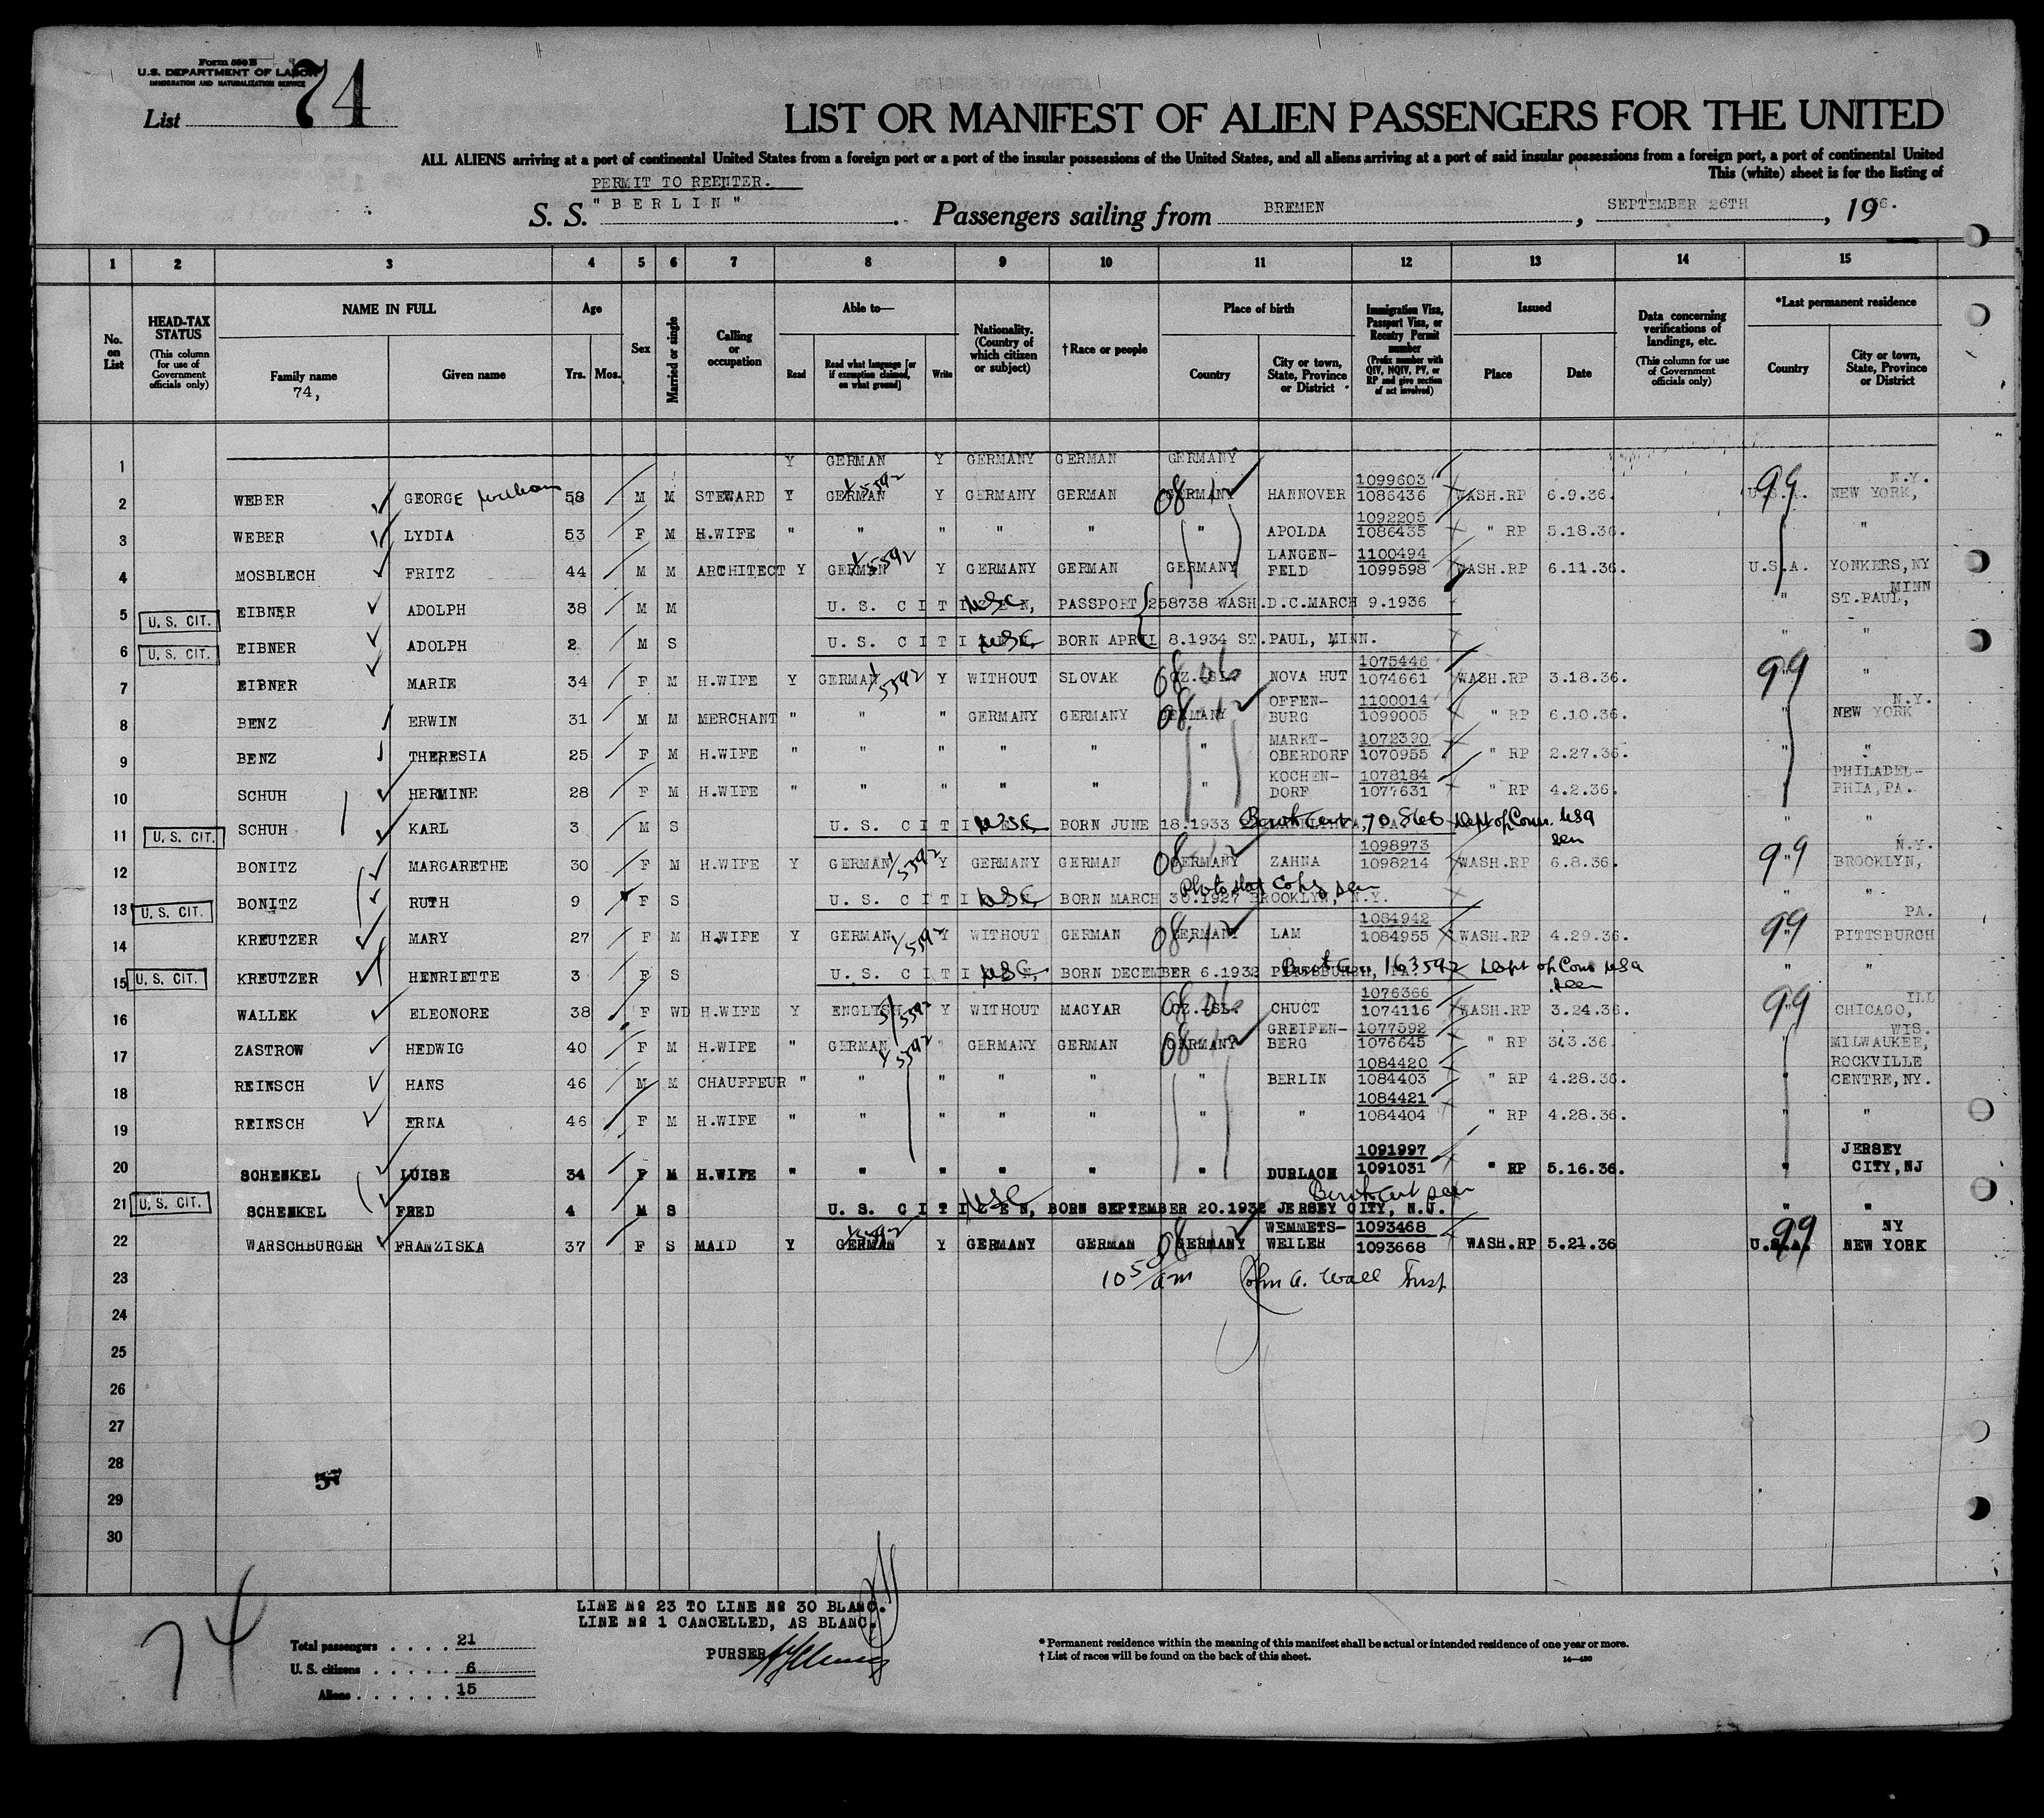 Form 500 B
U.S. DEPARTMENT OF LABOR
IMMIGRATION AND NATURALIZATION SERVICE
List 74
LIST OR MANIFEST OF ALIEN PASSENGERS FOR THE UNITED
ALL ALIENS arriving at a port of continental United States from a foreign port or a port of the insular possessions of the United States, and all aliens arriving at a port of said insular possessions from a foreign port, a port of continental United
This (white) sheet is for the listing of
PERMIT TO REENTER.
S. S. "BERLIN" Passengers sailing from BREMEN, SEPTEMBER 26TH, 1936.
1 2 3 4 5 6 7 8 9 10 11 12 13 14 15
No. on List
HEAD-TAX STATUS (This column for use of Government officials only)
NAME IN FULL Family name 74, Given name
Age Yrs. Mos.
Sex
Married or single
Calling or occupation
Able to— Read Read what language [or if exemption claimed, on what ground] Write
Nationality. (Country of which citizen or subject)
† Race or people
Place of birth Country City or town, State, Province or District
Immigration Visa, Passport Visa, or Reentry Permit number (Prefix number with QIV, NQIV, PV, or RP and give section of act involved)
Issued Place Date
Data concerning verifications of landings, etc. (This column for use of Government officials only)
*Last permanent residence Country City or town, State, Province or District
1 Y GERMAN Y GERMANY GERMAN GERMANY
2 WEBER GEORGE William 58 M M STEWARD Y GERMAN Y GERMANY GERMAN GERMANY HANNOVER 1099603 1086436 WASH.RP 6.9.36. U.S.A. NEW YORK, N.Y.
3 WEBER LYDIA 53 F M H.WIFE " " " " " " APOLDA 1092205 1086435 " RP 5.18.36. "
4 MOSBLECH FRITZ 44 M M ARCHITECT Y GERMAN Y GERMANY GERMAN GERMANY LANGEN-FELD 1100494 1099598 WASH.RP 6.11.36. U.S.A. YONKERS, NY
5 U. S. CIT. EIBNER ADOLPH 38 M M U. S. CITIZEN, USC PASSPORT 258738 WASH.D.C.MARCH 9.1936 " ST.PAUL, MINN
6 U. S. CIT. EIBNER ADOLPH 2 M S U. S. CITIZEN, USC BORN APRIL 8.1934 ST.PAUL, MINN. " "
7 EIBNER MARIE 34 F M H.WIFE Y GERMAN Y WITHOUT SLOVAK CZ.-SL. NOVA HUT 1075446 1074661 WASH.RP 3.18.36. 99 "
8 BENZ ERWIN 31 M M MERCHANT " " " GERMANY GERMANY GERMANY OFFEN-BURG 1100014 1099005 " RP 6.10.36. " NEW YORK N.Y.
9 BENZ THERESIA 25 F M H.WIFE " " " " " " MARKT-OBERDORF 1072390 1070955 " RP 2.27.36. " "
10 SCHUH HERMINE 28 F M H.WIFE " " " " " " KOCHEN-DORF 1078184 1077631 " RP 4.2.36. " PHILADEL-PHIA, PA.
11 U. S. CIT. SCHUH KARL 3 M S U. S. CITIZEN, USC BORN JUNE 18.1933 Birth Cert. Dept of Com. USA seen " "
12 BONITZ MARGARETHE 30 F M H.WIFE Y GERMAN Y GERMANY GERMAN GERMANY ZAHNA 1098973 1098214 WASH.RP 6.8.36. 99 BROOKLYN, N.Y.
Photostat Copy seen
13 U. S. CIT. BONITZ RUTH 9 F S U. S. CITIZEN, USC BORN MARCH 30.1927 BROOKLYN, N.Y. " "
14 KREUTZER MARY 27 F M H.WIFE Y GERMAN Y WITHOUT GERMAN GERMANY LAM 1084942 1084955 WASH.RP 4.29.36. 99 PITTSBURGH PA.
15 U. S. CIT. KREUTZER HENRIETTE 3 F S U. S. CITIZEN, USC BORN DECEMBER 6.1932 PITTSBURGH, PA. 163592 Dept of Com USA seen " "
16 WALLEK ELEONORE 38 F WD H.WIFE Y ENGLISH Y WITHOUT MAGYAR CZ.-SL. CHUCT 1076366 1074116 WASH.RP 3.24.36. 99 CHICAGO, ILL
17 ZASTROW HEDWIG 40 F M H.WIFE " GERMAN " GERMANY GERMAN GERMANY GREIFEN-BERG 1077592 1076645 " RP " MILWAUKEE, WIS.
18 REINSCH HANS 46 M M CHAUFFEUR " " " " " " BERLIN 1084420 1084403 " RP 4.28.36. " ROCKVILLE CENTRE, NY.
19 REINSCH ERNA 46 F M H.WIFE " " " " " " " 1084421 1084404 " RP 4.28.36. " "
20 SCHENKEL LUISE 34 F M H.WIFE " " " " " " DURLACH 1091997 1091031 " RP 5.16.36. " JERSEY CITY, NJ
Birth Cert seen
21 U. S. CIT. SCHENKEL FRED 4 M S U. S. CITIZEN, USC BORN SEPTEMBER 20.1932 JERSEY CITY, N.J. " "
22 WARSCHBURGER FRANZISKA 37 F S MAID Y GERMAN Y GERMANY GERMAN GERMANY WEMMETS-WEILER 1093468 1093668 WASH.RP 5.21.36 U.S.A. NEW YORK NY
23 10 50 am John A. Wall Insp
24
25
26
27
28
29
30
LINE № 23 TO LINE № 30 BLANC.
LINE № 1 CANCELLED, AS BLANC.
PURSER
74
Total passengers . . . . 21
U. S. citizens . . . . . 6
Aliens . . . . . . 15
* Permanent residence within the meaning of this manifest shall be actual or intended residence of one year or more.
† List of races will be found on the back of this sheet.